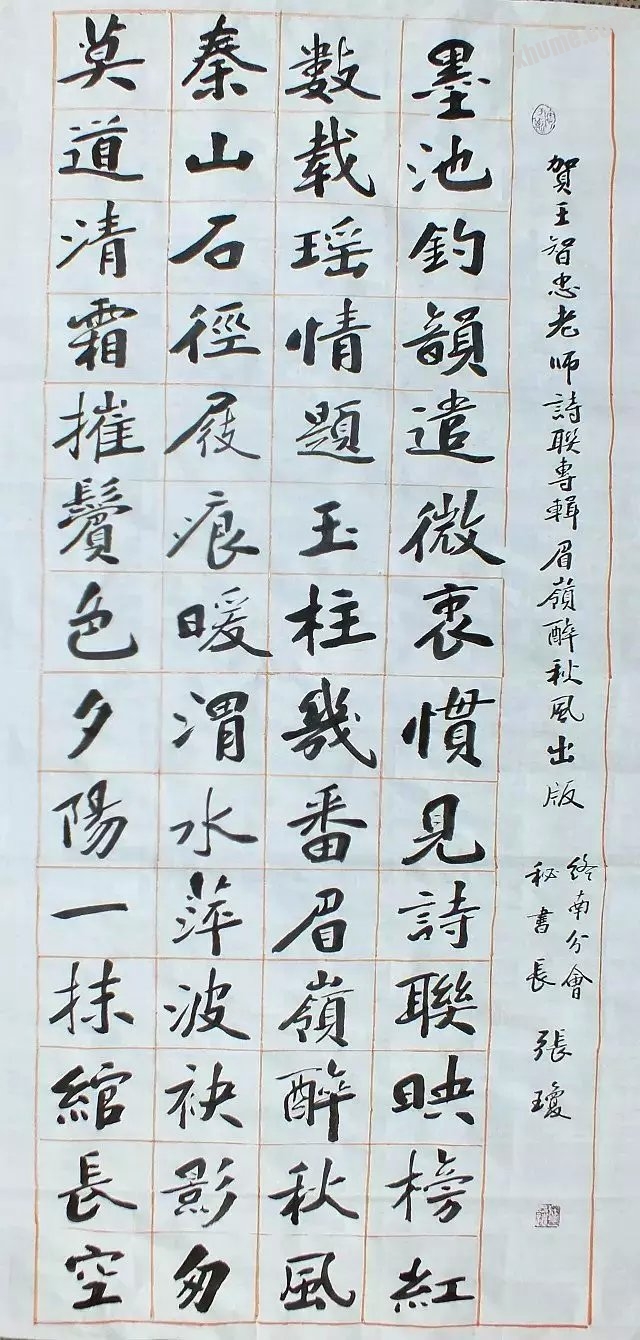 賀王智忠老师詩联專輯眉嶺醉秋風出版
終南分會
秘書長
張瓊
墨池釣韻遣微衷慣見詩聯映榜紅
數载瑶情題玉柱幾番眉嶺醉秋風
秦山石徑屐痕暖渭水萍波袂影匆
莫道清霜摧鬢色夕陽一抹綰長空